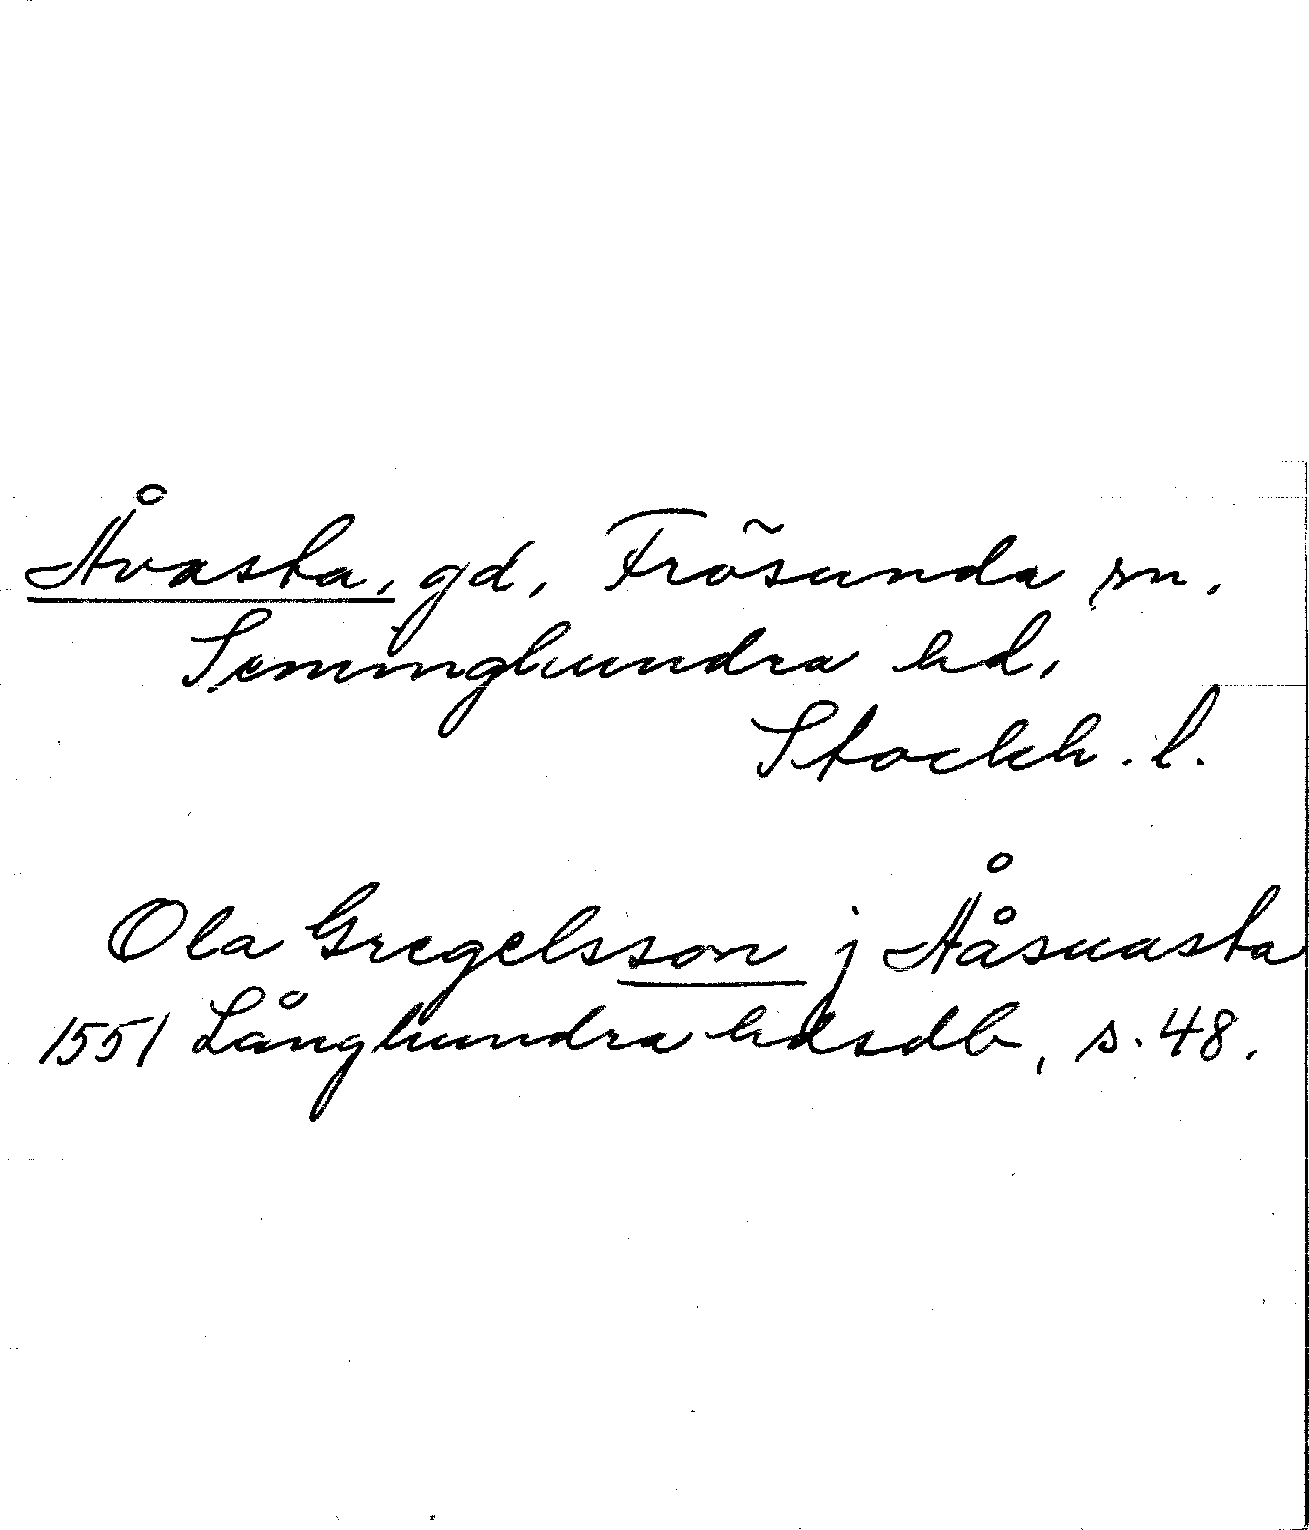 Åvasta, gd, Frösunda sn,
Seminghundra hd,
Stockh. l.
Ola Gregelsson j Ååsuasta
1551 Långhundra hdsdb, s. 48.